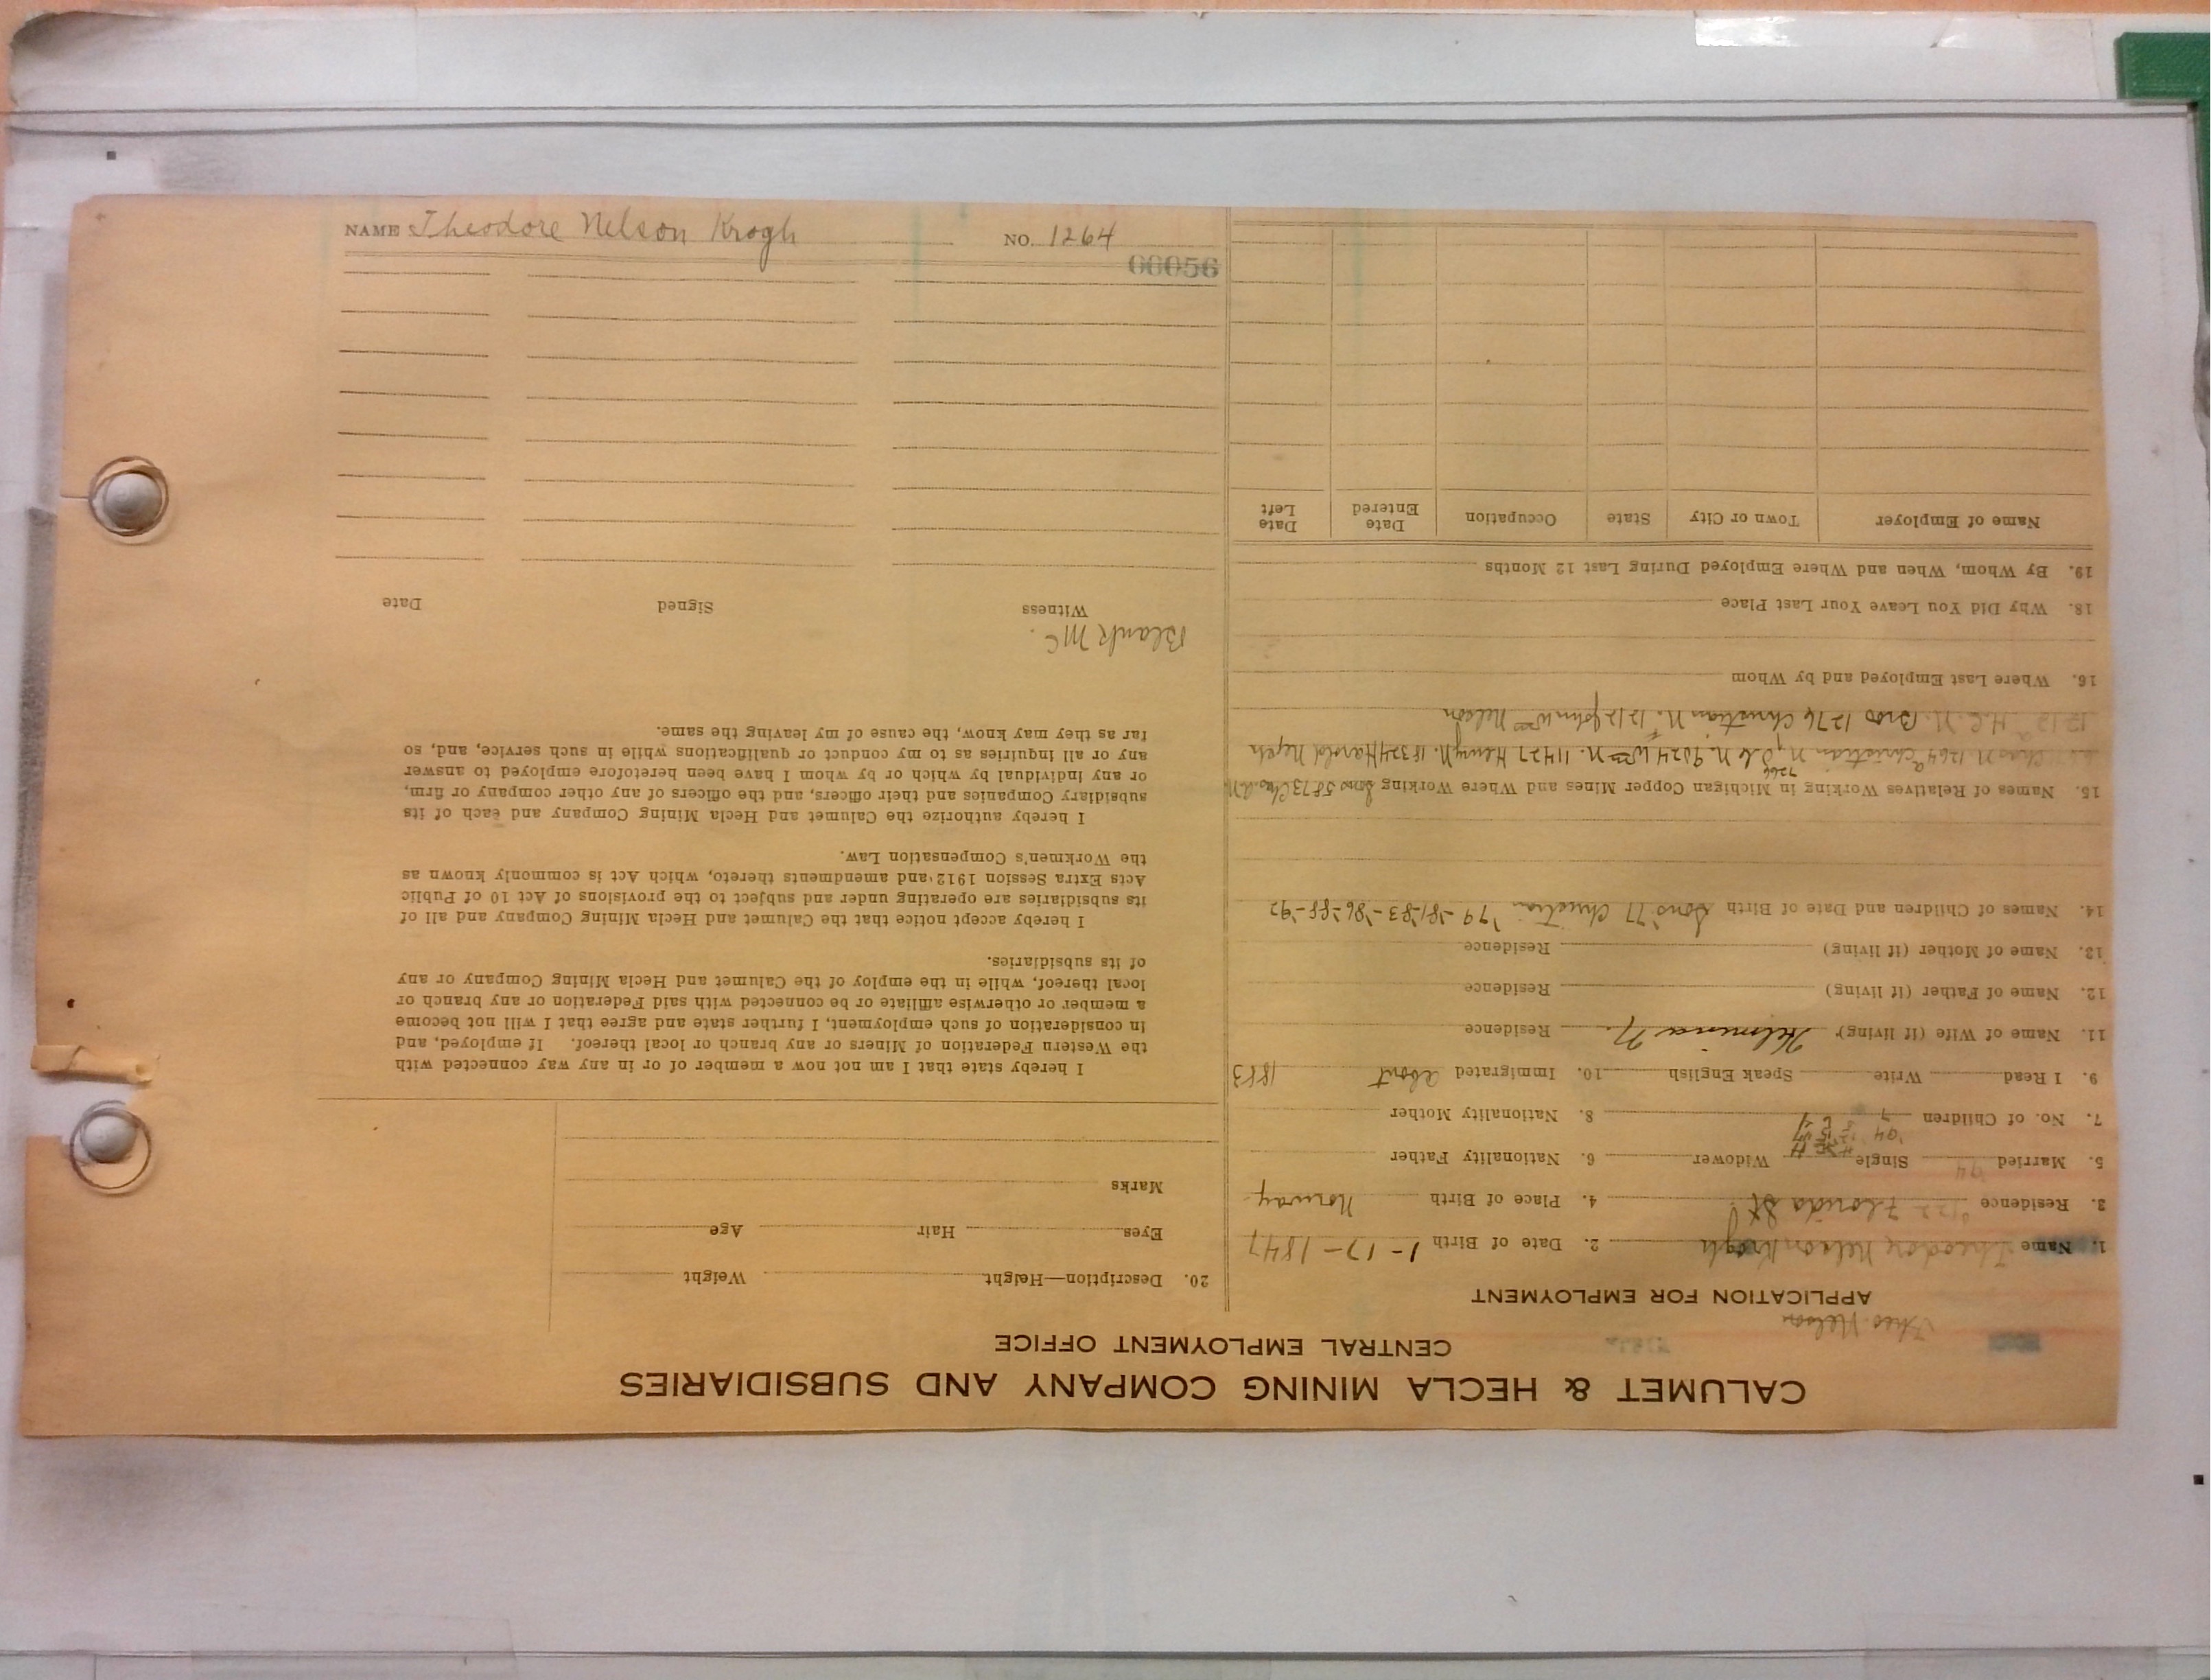 CALUMET & HECLA MINING COMPANY AND SUBSIDIARIES
CENTRAL EMPLOYMENT OFFICE
Theo. Nelson
APPLICATION FOR EMPLOYMENT
1. Name Theodore Nelson Krogh 2. Date of Birth 1-17-1847
3. Residence Florida St. 4. Place of Birth Norway
5. Married Single Widower 6. Nationality Father
7. No. of Children 7 8. Nationality Mother
9. I Read Write Speak English 10. Immigrated about 1883
11. Name of Wife (if living) Helmina N. Residence
12. Name of Father (if living) Residence
13. Name of Mother (if living) Residence
14. Names of Children and Date of Birth Sons '77 Christian '79-'81-'83-'86-'88-'92
15. Names of Relatives Working in Michigan Copper Mines and Where Working Sons 5873 Chas. A. N
Chas N. 1264 Christian N, 7266 N. 9024 Wm N. 11427 Henry N. 18324 Harold Neph
1212 H.C.N. Bro 1276 Christian N. 1212 John Wm Nelson
16. Where Last Employed and by Whom
18. Why Did You Leave Your Last Place
19. By Whom, When and Where Employed During Last 12 Months
Name of Employer Town or City State Occupation Date Entered Date Left
20. Description—Height Weight
Eyes Hair Age
Marks
I hereby state that I am not now a member of or in any way connected with
the Western Federation of Miners or any branch or local thereof. If employed, and
in consideration of such employment, I further state and agree that I will not become
a member or otherwise affiliate or be connected with said Federation or any branch or
local thereof, while in the employ of the Calumet and Hecla Mining Company or any
of its subsidiaries.
I hereby accept notice that the Calumet and Hecla Mining Company and all of
its subsidiaries are operating under and subject to the provisions of Act 10 of Public
Acts Extra Session 1912 and amendments thereto, which Act is commonly known as
the Workmen's Compensation Law.
I hereby authorize the Calumet and Hecla Mining Company and each of its
subsidiary Companies and their officers, and the officers of any other company or firm,
or any individual by which or by whom I have been heretofore employed to answer
any or all inquiries as to my conduct or qualifications while in such service, and, so
far as they may know, the cause of my leaving the same.
Blank Mc.
Witness Signed Date
NAME Theodore Nelson Krogh NO. 1264
00056